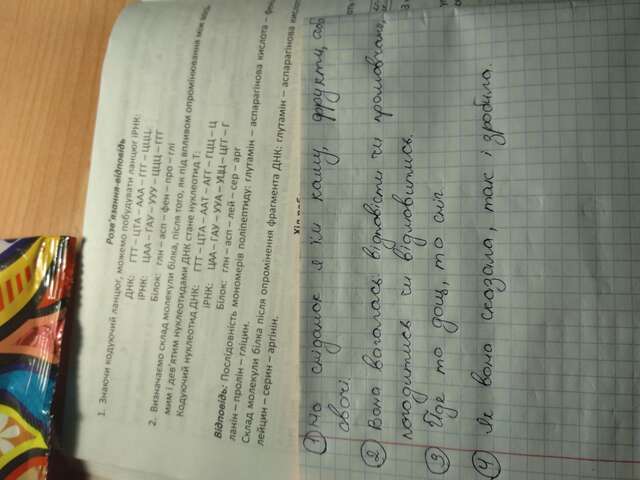 Розв'язання-відповідь
1. Знаючи кодуючий ланцюг, можемо побудувати ланцюг іРНК:
ДНК: ГТТ – ЦТА – ААА – ГГГ – ЦЦЦ;
іРНК: ЦАА – ГАУ – УУУ – ЦЦЦ – ГГГ
Білок: глн – асп – фен – про – глі
2. Визначаємо склад молекули білка, після того, як під впливом опромінювання між
мим і дев'ятим нуклеотидами ДНК стане нуклеотид Т:
Кодуючий нуклеотид ДНК: ГТТ – ЦТА – ААТ – АГГ – ГЦЦ – Ц
іРНК: ЦАА – ГАУ – УУА – УЦЦ – ЦГГ – Г
Білок: глн – асп – лей – сер – арг
Відповідь: Послідовність мономерів поліпептиду: глутамін – аспарагінова кислота –
ланін – пролін – гліцин.
Склад молекули білка після опромінення фрагмента ДНК: глутамін – аспарагінова
лейцин – серин – аргінін.
① На сніданок я їм кашу, фрукти, або
овочі
② Вона вагалась відповісти чи промовчати,
погодитись чи відмовитись.
③ Йде то дощ, то сніг
④ Як вона сказала, так і зробила.